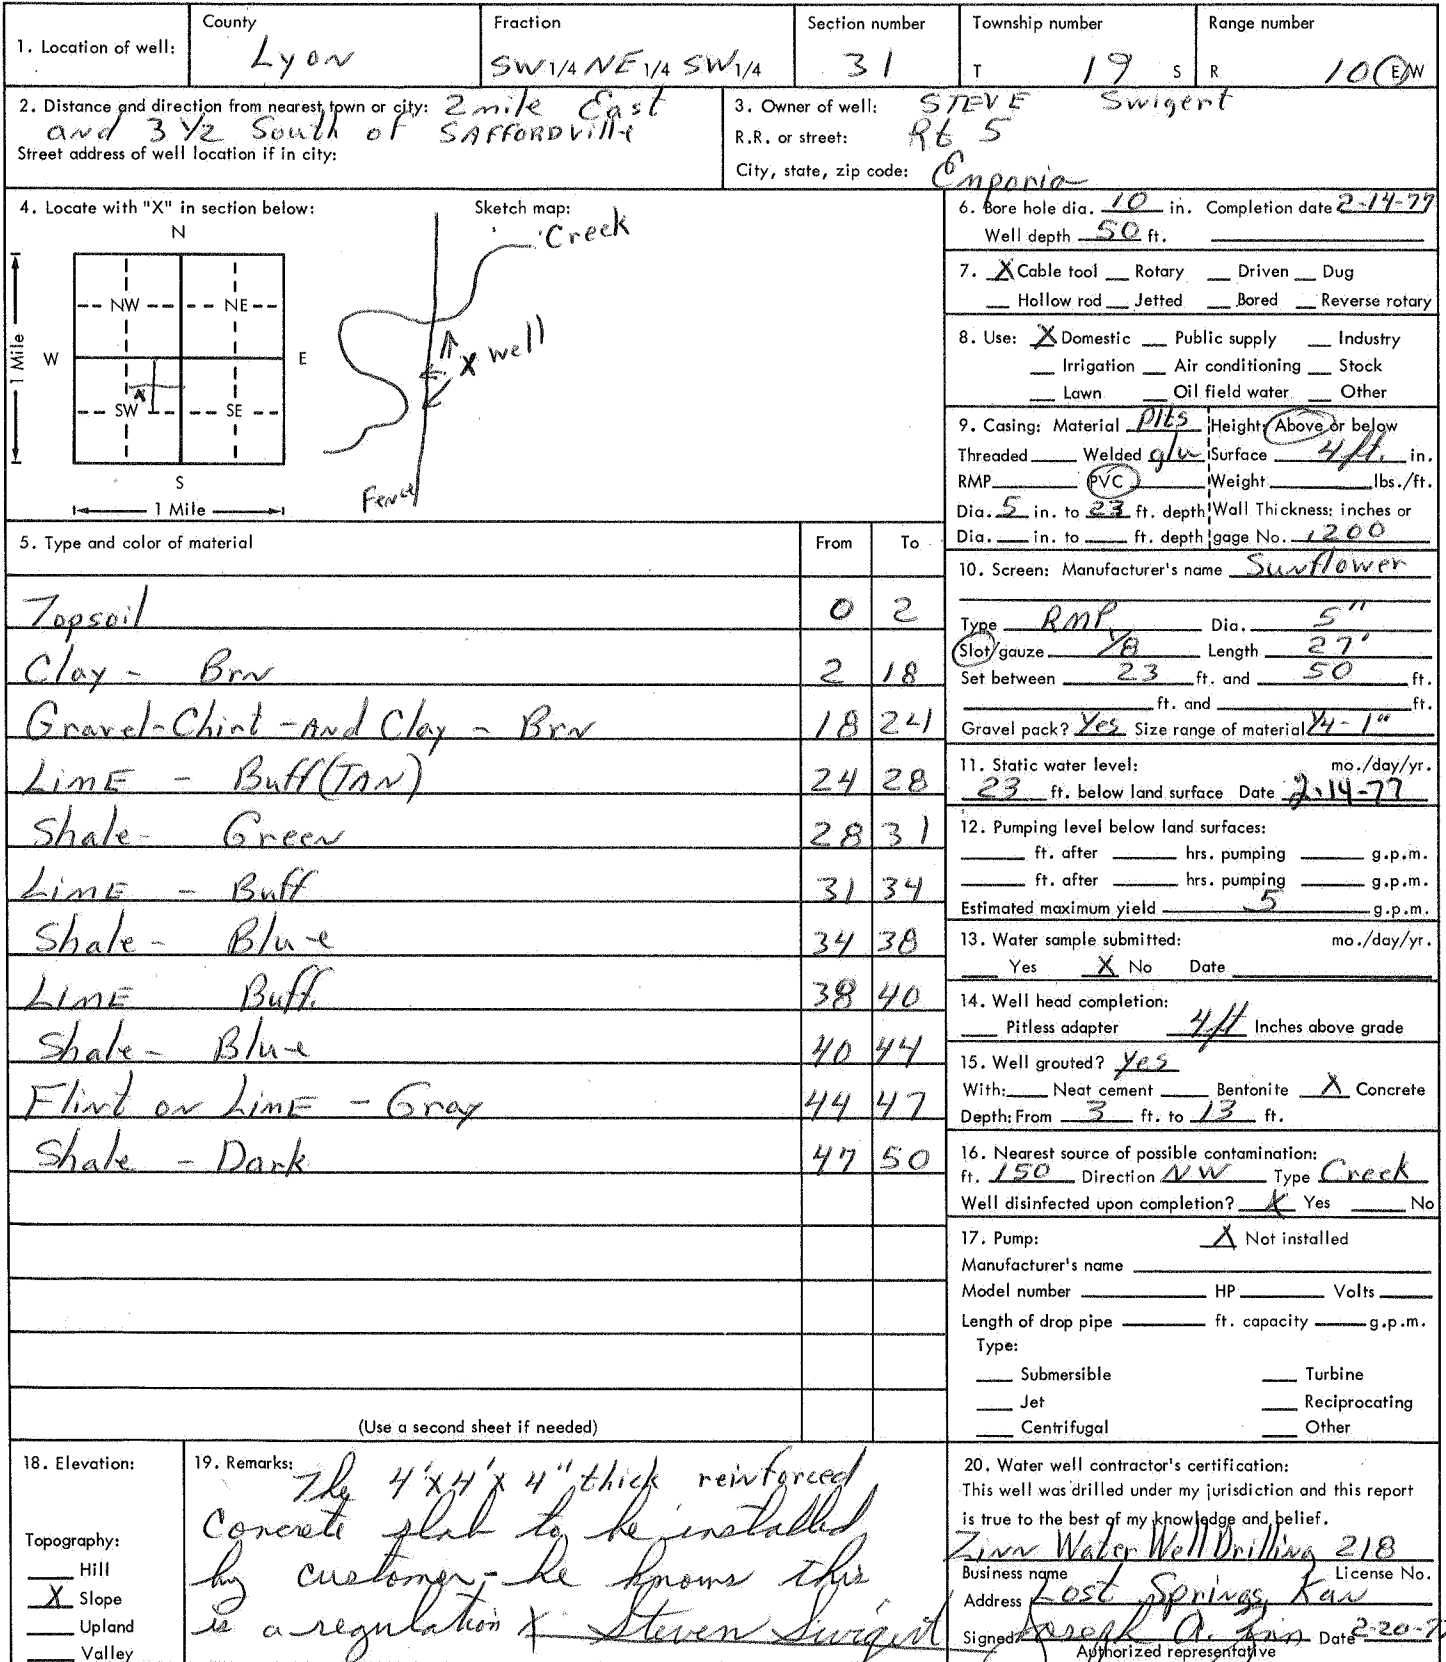 1. Location of well: County Lyon Fraction SW 1/4 NE 1/4 SW 1/4 Section number 31 Township number T 19 S Range number R 10 E/W
2. Distance and direction from nearest town or city: 2 mile East
and 3 1/2 South of SAFFORDVille
Street address of well location if in city:
3. Owner of well: STEVE Swigert
R.R. or street: Rt 5
City, state, zip code: Emporia
4. Locate with "X" in section below:
N
NW NE
W E
SW X SE
S
1 Mile
1 Mile
Sketch map:
Creek
X well
Fence
5. Type and color of material From To
Topsoil 0 2
Clay - Brn 2 18
Gravel-Chirt-And Clay - Brn 18 24
LimE - Buff (TAN) 24 28
Shale- Green 28 31
LimE - Buff 31 34
Shale- Blue 34 38
LimE Buff 38 40
Shale- Blue 40 44
Flint or LimE - Gray 44 47
Shale - Dark 47 50
(Use a second sheet if needed)
6. Bore hole dia. 10 in. Completion date 2-14-77
Well depth 50 ft.
7. X Cable tool Rotary Driven Dug
Hollow rod Jetted Bored Reverse rotary
8. Use: X Domestic Public supply Industry
Irrigation Air conditioning Stock
Lawn Oil field water Other
9. Casing: Material Plts Height: Above or below
Threaded Welded glu Surface 4 ft. in.
RMP PVC Weight lbs./ft.
Dia. 5 in. to 23 ft. depth Wall Thickness: inches or
Dia. in. to ft. depth gage No. .200
10. Screen: Manufacturer's name Sunflower
Type RMP Dia. 5"
Slot/gauze 1/8 Length 27'
Set between 23 ft. and 50 ft.
ft. and ft.
Gravel pack? Yes Size range of material 1/4 - 1"
11. Static water level: mo./day/yr.
23 ft. below land surface Date 2-14-77
12. Pumping level below land surfaces:
ft. after hrs. pumping g.p.m.
ft. after hrs. pumping g.p.m.
Estimated maximum yield 5 g.p.m.
13. Water sample submitted: mo./day/yr.
Yes X No Date
14. Well head completion:
Pitless adapter 4 ft Inches above grade
15. Well grouted? Yes
With: Neat cement Bentonite X Concrete
Depth: From 3 ft. to 13 ft.
16. Nearest source of possible contamination:
ft. 150 Direction NW Type Creek
Well disinfected upon completion? X Yes No
17. Pump: X Not installed
Manufacturer's name
Model number HP Volts
Length of drop pipe ft. capacity g.p.m.
Type:
Submersible Turbine
Jet Reciprocating
Centrifugal Other
18. Elevation:
Topography:
Hill
X Slope
Upland
Valley
19. Remarks: The 4'x4'x4" thick reinforced
Concrete slab to be installed
by customer - he knows this
is a regulation X Steven Swigert
20. Water well contractor's certification:
This well was drilled under my jurisdiction and this report
is true to the best of my knowledge and belief.
Zinn Water Well Drilling 218
Business name License No.
Address Lost Springs, Kan
Signed Joseph A. Zinn Date 2-20-7
Authorized representative